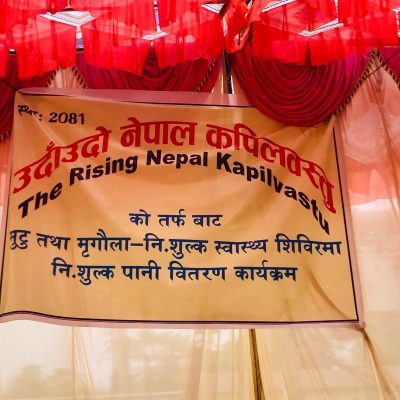 स्था: 2081
उदाँउदो नेपाल कपिलवस्तु
The Rising Nepal Kapilvastu
को तर्फ बाट
मुटु तथा मृगौला–नि.शुल्क स्वास्थ्य शिविरमा
नि.शुल्क पानी वितरण कार्यक्रम